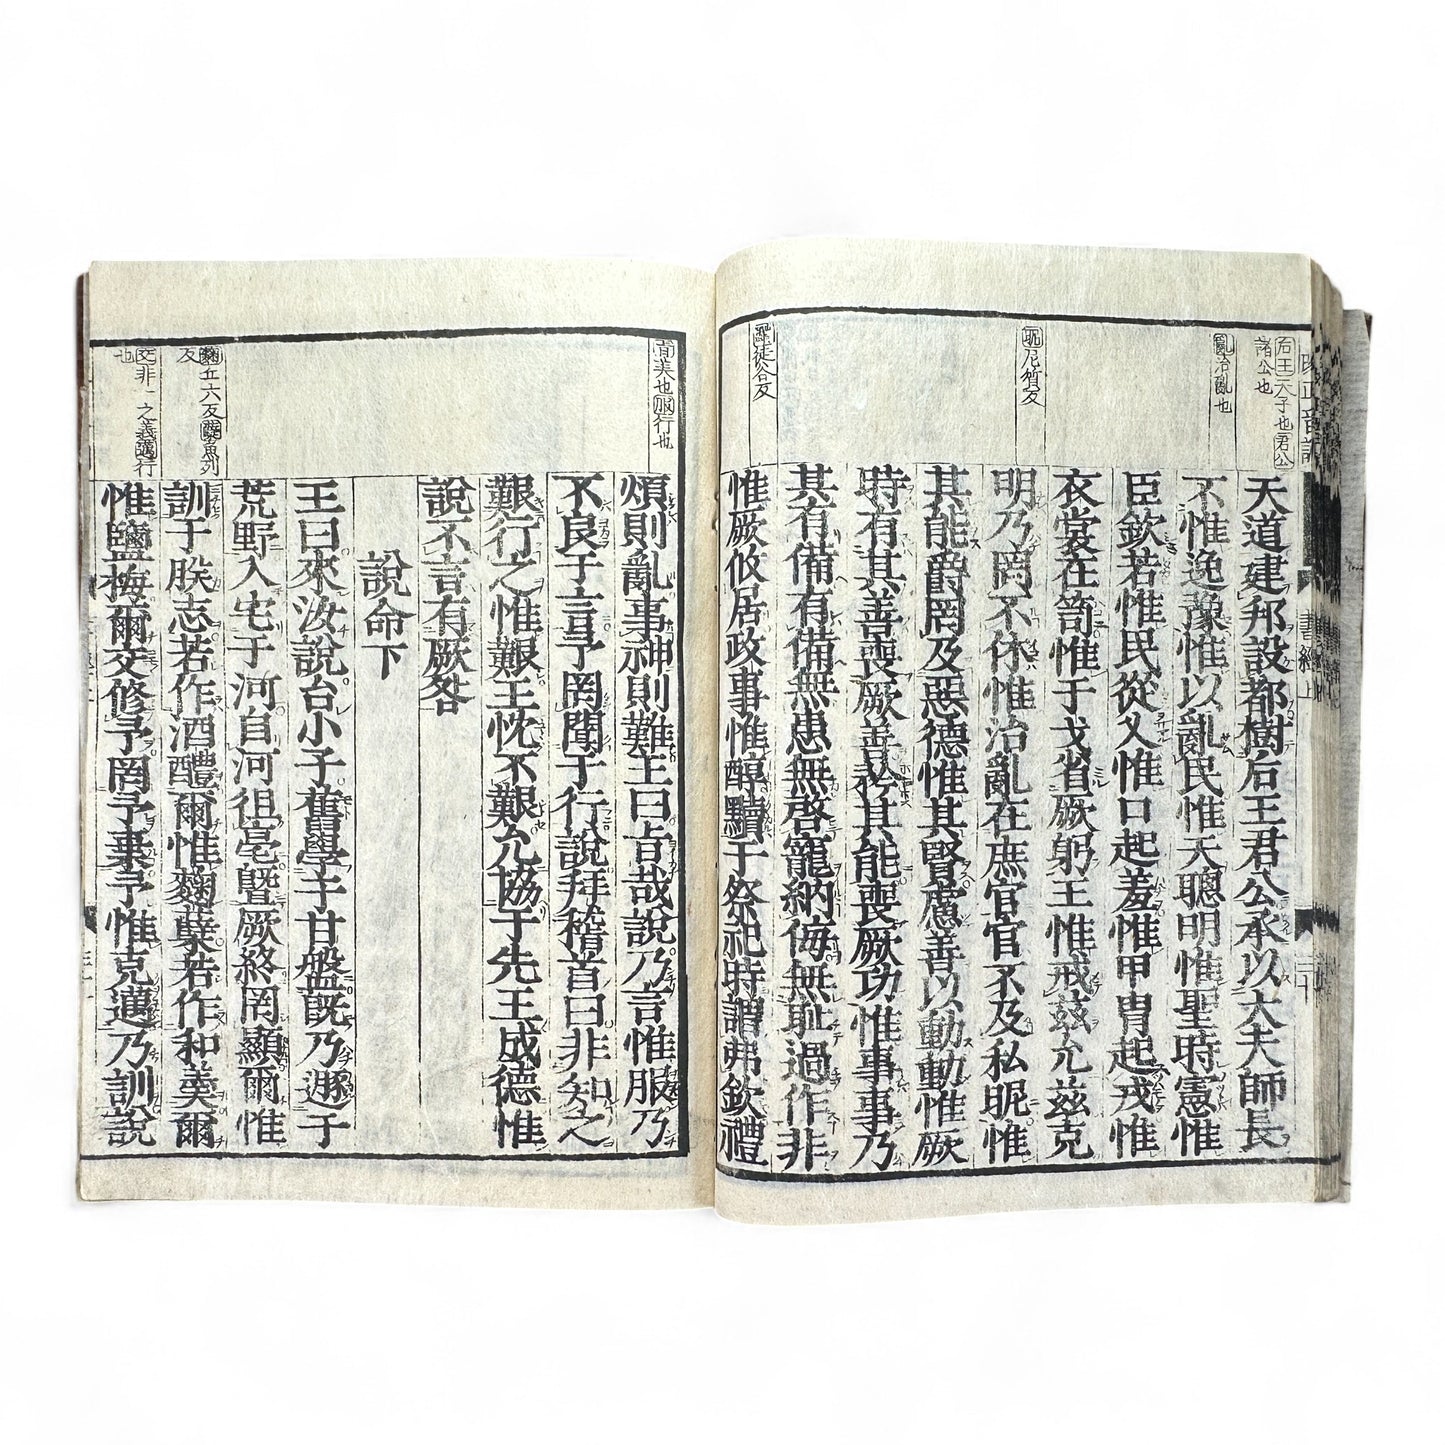 后王天子也君公
諸公也
亂治亂也
昵尼質反
黷徒谷反
天道建邦設都樹后王君公承以大夫師長
不惟逸豫惟以亂民惟天聰明惟聖時憲惟
臣欽若惟民從乂惟口起羞惟甲冑起戎惟
衣裳在笥惟干戈省厥躬王惟戒茲允茲克
明乃罔不休惟治亂在庶官官不及私昵惟
其能爵罔及惡德惟其賢慮善以動動惟厥
時有其善喪厥善矜其能喪厥功惟事事乃
其有備有備無患無啓寵納侮無恥過作非
惟厥攸居政事惟醇黷于祭祀時謂弗欽禮
書經上
旨美也服行也
麴丘六反糵魚列
反
交非一之義邁行
也
煩則亂事神則難王曰旨哉說乃言惟服乃
不良于言予罔聞于行說拜稽首曰非知之
艱行之惟艱王忱不艱允協于先王成德惟
說不言有厥咎
說命下
王曰來汝說台小子舊學于甘盤既乃遯于
荒野入宅于河自河徂亳曁厥終罔顯爾惟
訓于朕志若作酒醴爾惟麴糵若作和羹爾
惟鹽梅爾交修予罔予棄予惟克邁乃訓說